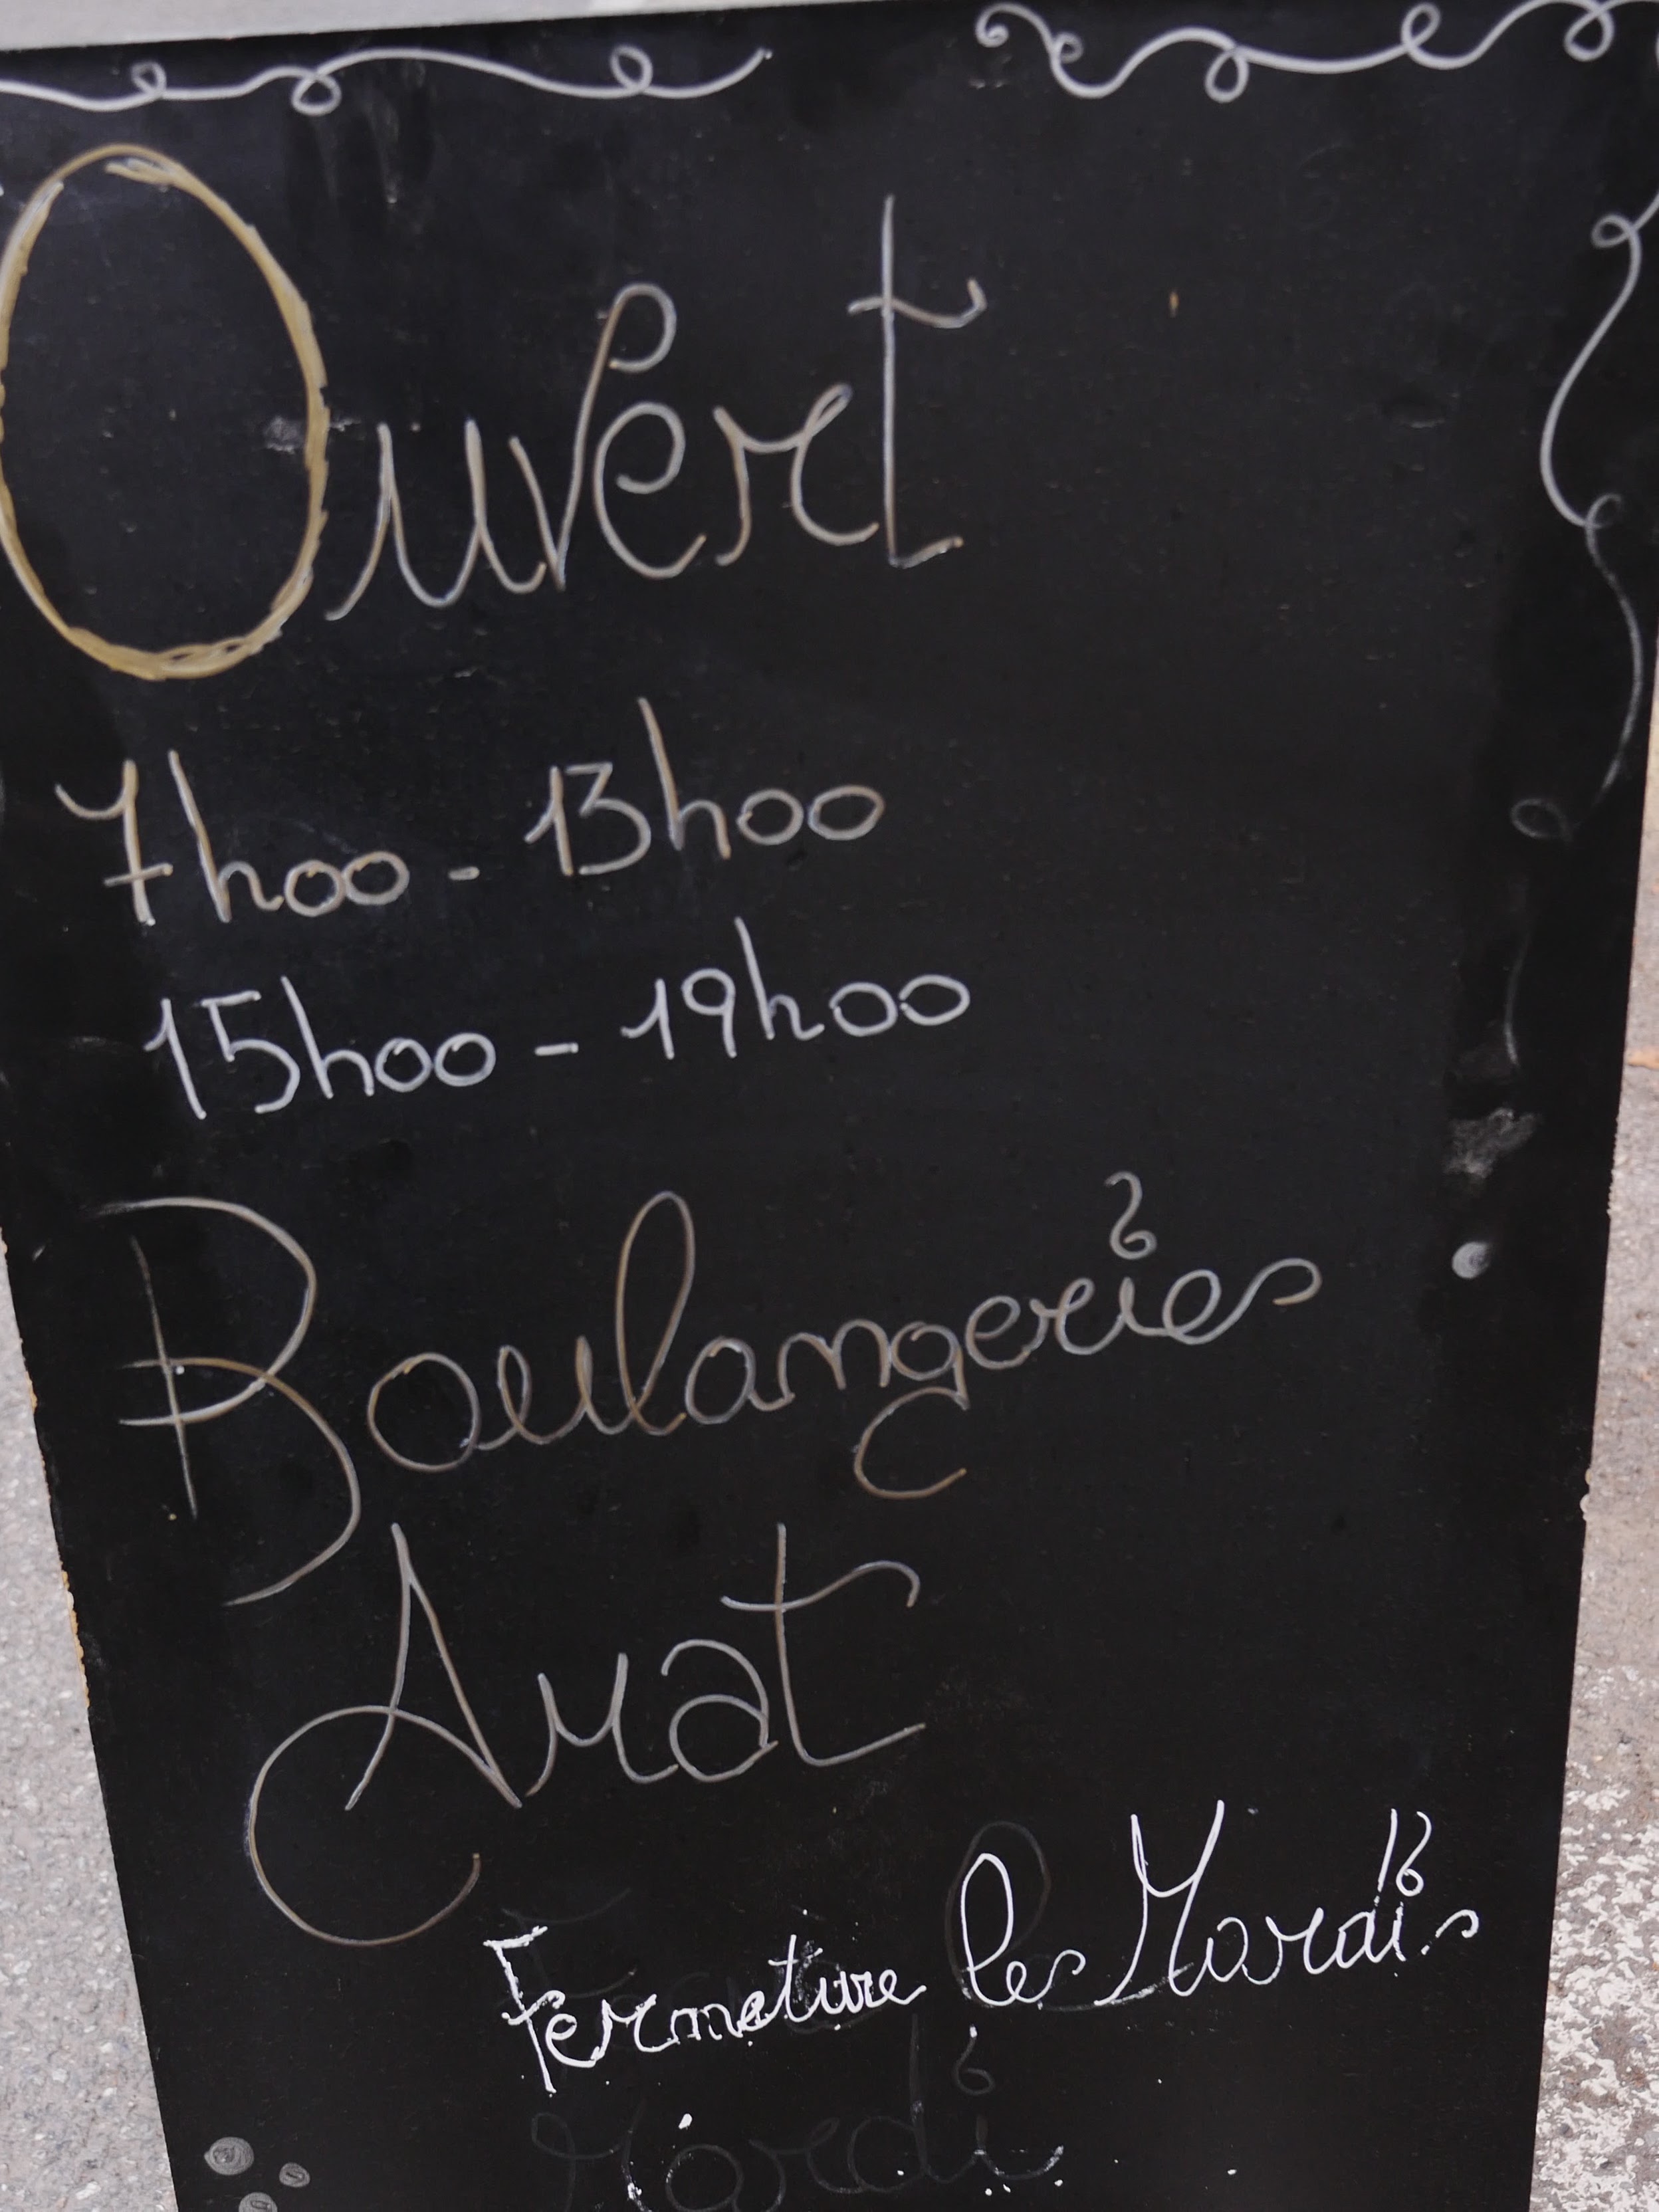 Ouvert
7h00 - 13h00
15h00 - 19h00
Boulangeries
Amat
Fermeture les Mardis
Mardi